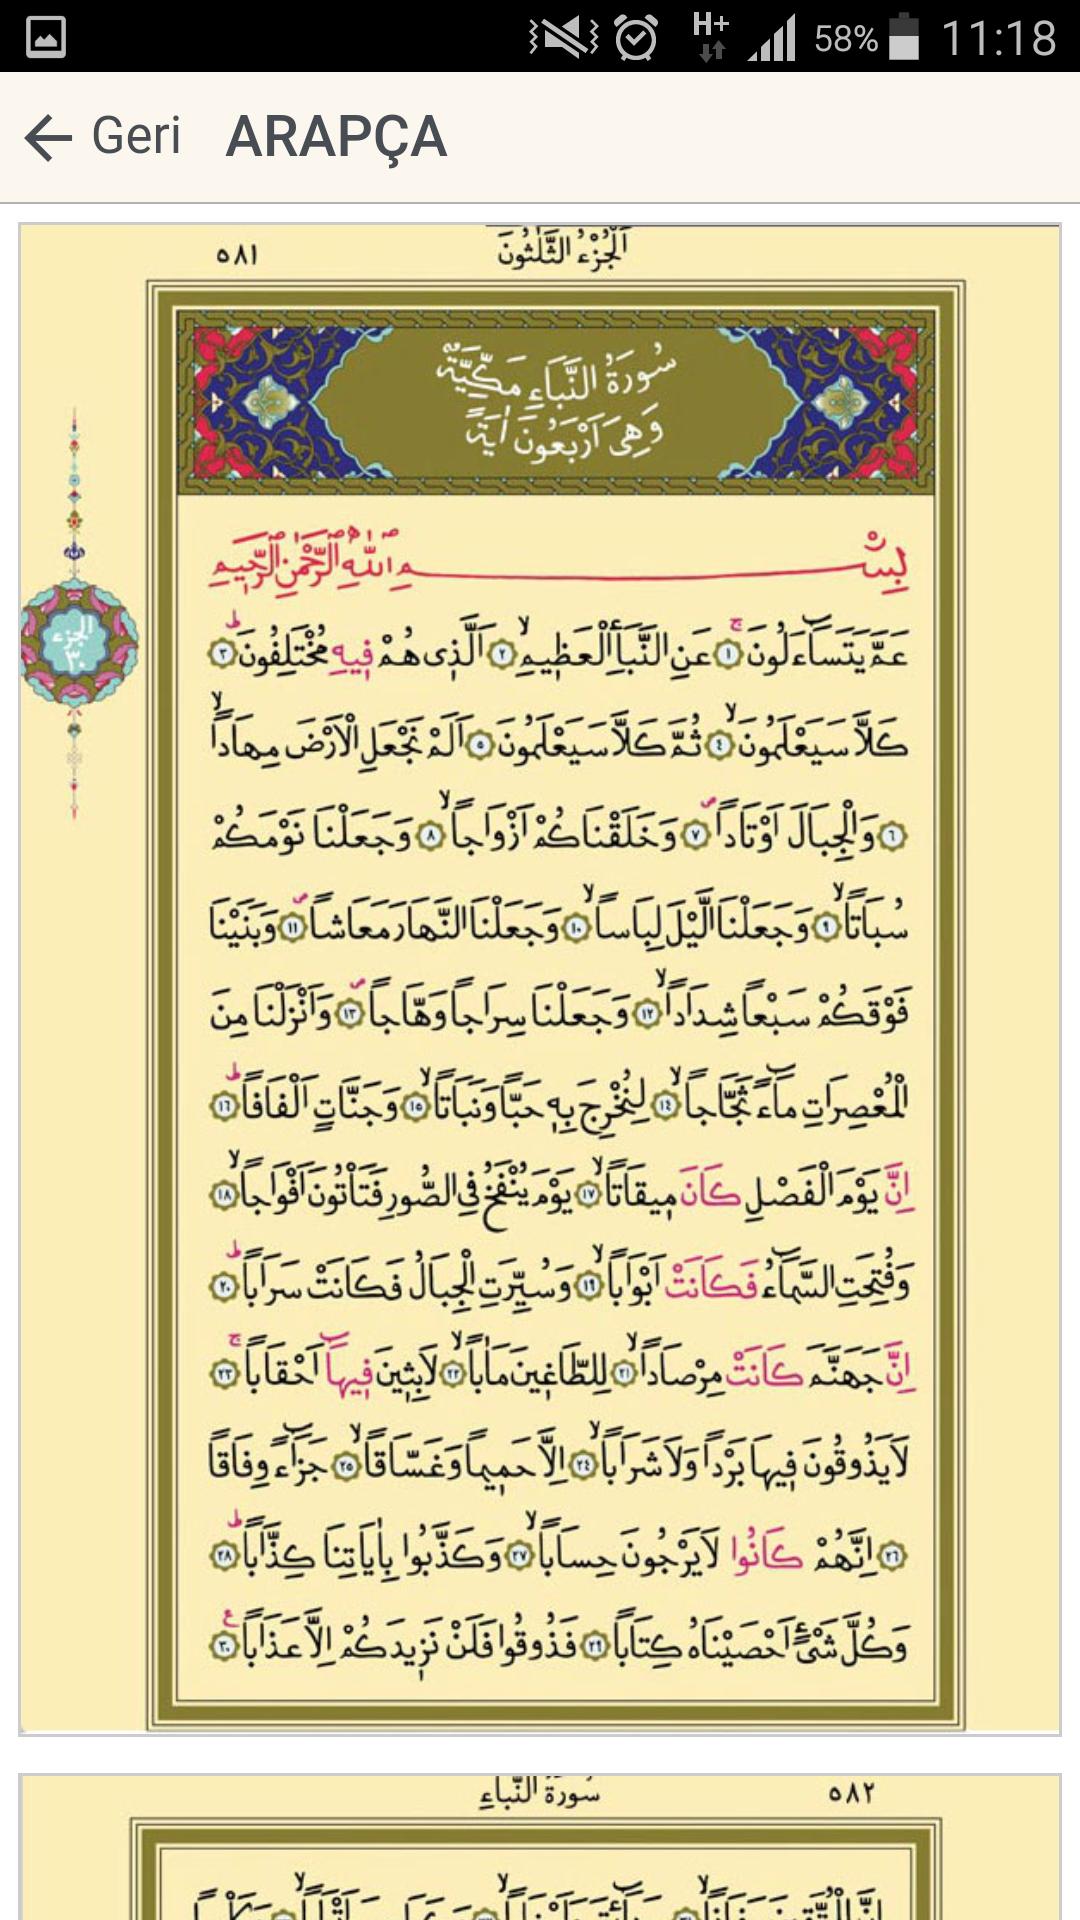 58% 11:18
Geri ARAPÇA
اَلْجُزْءُ الثَّلٰثُونَ ٥٨١
سُورَةُ النَّبَأِ مَكِّيَّةٌ
وَهِىَ اَرْبَعُونَ اٰيَةً
الجزء
٣٠
بِسْمِ اللّٰهِ الرَّحْمٰنِ الرَّحٖيمِ
عَمَّ يَتَسَٓاءَلُونَۚ ﴿١﴾ عَنِ النَّبَأِ الْعَظٖيمِۙ ﴿٢﴾ اَلَّذٖى هُمْ فٖيهِ مُخْتَلِفُونَۜ ﴿٣﴾
كَلَّا سَيَعْلَمُونَۙ ﴿٤﴾ ثُمَّ كَلَّا سَيَعْلَمُونَ ﴿٥﴾ اَلَمْ نَجْعَلِ الْاَرْضَ مِهَاداًۙ
﴿٦﴾ وَالْجِبَالَ اَوْتَاداًۖ ﴿٧﴾ وَخَلَقْنَاكُمْ اَزْوَاجاًۙ ﴿٨﴾ وَجَعَلْنَا نَوْمَكُمْ
سُبَاتاًۙ ﴿٩﴾ وَجَعَلْنَا الَّيْلَ لِبَاساًۙ ﴿١٠﴾ وَجَعَلْنَا النَّهَارَ مَعَاشاًۖ ﴿١١﴾ وَبَنَيْنَا
فَوْقَكُمْ سَبْعاً شِدَاداًۙ ﴿١٢﴾ وَجَعَلْنَا سِرَاجاً وَهَّاجاًۖ ﴿١٣﴾ وَاَنْزَلْنَا مِنَ
الْمُعْصِرَاتِ مَٓاءً ثَجَّاجاًۙ ﴿١٤﴾ لِنُخْرِجَ بِهٖ حَباًّ وَنَبَاتاًۙ ﴿١٥﴾ وَجَنَّاتٍ اَلْفَافاًۜ ﴿١٦﴾
اِنَّ يَوْمَ الْفَصْلِ كَانَ مٖيقَاتاًۙ ﴿١٧﴾ يَوْمَ يُنْفَخُ فِى الصُّورِ فَتَأْتُونَ اَفْوَاجاًۙ ﴿١٨﴾
وَفُتِحَتِ السَّمَٓاءُ فَكَانَتْ اَبْوَاباًۙ ﴿١٩﴾ وَسُيِّرَتِ الْجِبَالُ فَكَانَتْ سَرَاباًۜ ﴿٢٠﴾
اِنَّ جَهَنَّمَ كَانَتْ مِرْصَاداًۙ ﴿٢١﴾ لِلطَّاغٖينَ مَاٰباًۙ ﴿٢٢﴾ لَابِثٖينَ فٖيهَٓا اَحْقَاباًۚ ﴿٢٣﴾
لَا يَذُوقُونَ فٖيهَا بَرْداً وَلَا شَرَاباًۙ ﴿٢٤﴾ اِلَّا حَمٖيماً وَغَسَّاقاًۙ ﴿٢٥﴾ جَزَٓاءً وِفَاقاً
﴿٢٦﴾ اِنَّهُمْ كَانُوا لَا يَرْجُونَ حِسَاباًۙ ﴿٢٧﴾ وَكَذَّبُوا بِاٰيَاتِنَا كِذَّاباًۜ ﴿٢٨﴾
وَكُلَّ شَیْءٍ اَحْصَيْنَاهُ كِتَاباً ﴿٢٩﴾ فَذُوقُوا فَلَنْ نَزٖيدَكُمْ اِلَّا عَذَاباً ﴿٣٠﴾ ع
٥٨٢ سُورَةُ النَّبَأِ